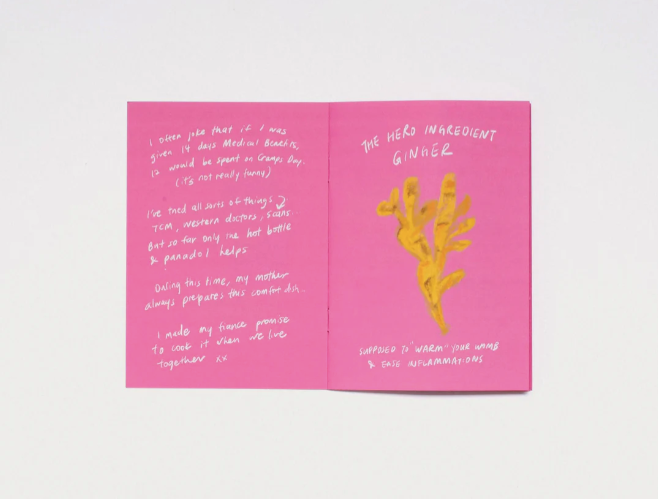 I often joke that if I was
given 14 days Medical Benefits,
12 would be spent on Cramps Day..
(it's not really funny)
I've tried all sorts of things
TCM, western doctors, scans...
But so far only the hot bottle
& panadol helps
During this time, my mother
always prepares this comfort dish...
I made my fiance promise
to cook it when we live
together xx
THE HERO INGREDIENT
GINGER
SUPPOSED TO "WARM" YOUR WOMB
& EASE INFLAMMATIONS